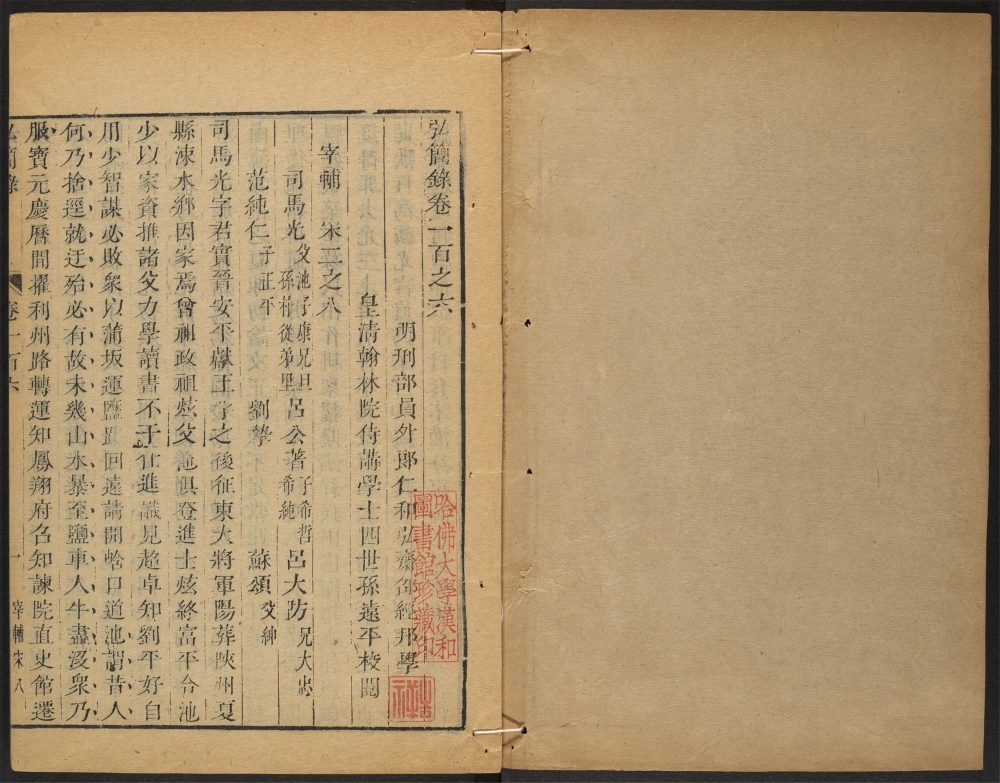 弘簡錄卷一百之六
明刑部員外郎仁和弘齋邵經邦學
皇清翰林院侍講學士四世孫遠平校閱
宰輔 宋二之八
司馬光父池子康兄旦孫植從弟里 呂公著子希哲希純 呂大防兄大忠
范純仁子正平 劉摯 蘇頌父紳
司馬光字君實晉安平獻王孚之後征東大將軍陽葬陝州夏
縣涑水鄉因家焉曾祖政祖炫父池俱登進士炫終富平令池
少以家資推諸父力學讀書不干仕進識見超卓知劉平好自
用少智謀必敗衆以蒲坂運鹽迂回遠請開峪口道池謂昔人
何乃捨逕就迂殆必有故未幾山水暴至鹽車人牛盡沒衆乃
服寶元慶曆間擢利州路轉運知鳳翔府召知諫院直史館遷
弘簡錄 卷一百六 一 宰輔宋八
哈佛大學漢和
圖書館珍藏印